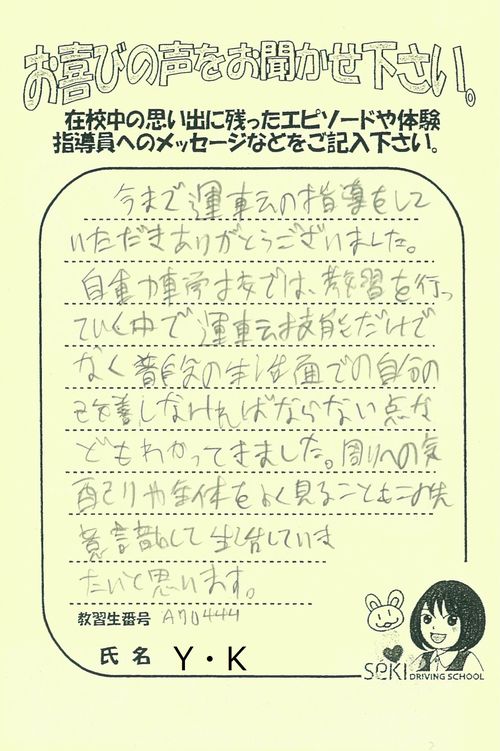 お喜びの声をお聞かせ下さい。
在校中の思い出に残ったエピソードや体験
指導員へのメッセージなどをご記入下さい。
今まで運転の指導をして
いただきありがとうございました。
自動車学校では、教習を行っ
ていく中で運転技能だけで
なく普段の生活面での自分の
改善しなければならない点な
どもわかってきました。周りへの気
配りや全体をよく見ることも
意識して生活していき
たいと思います。
教習生番号 A70444
氏名 Y・K
SEKI DRIVING SCHOOL